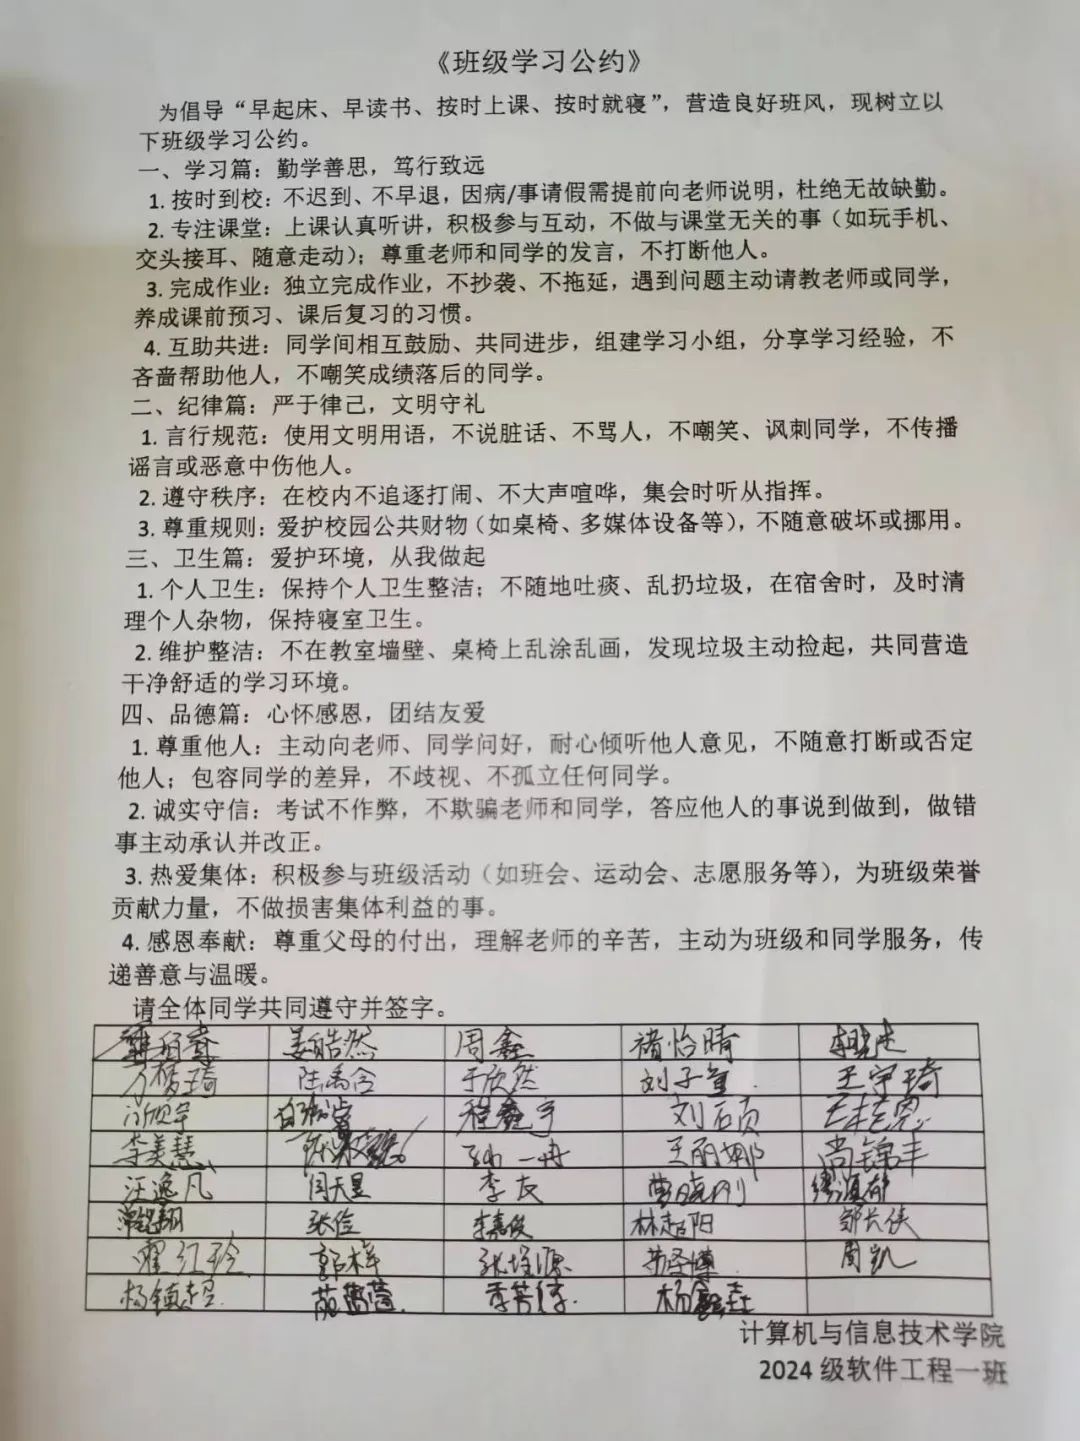 《班级学习公约》
为倡导“早起床、早读书、按时上课、按时就寝”，营造良好班风，现树立以
下班级学习公约。
一、学习篇：勤学善思，笃行致远
1. 按时到校：不迟到、不早退，因病/事请假需提前向老师说明，杜绝无故缺勤。
2. 专注课堂：上课认真听讲，积极参与互动，不做与课堂无关的事（如玩手机、
交头接耳、随意走动）；尊重老师和同学的发言，不打断他人。
3. 完成作业：独立完成作业，不抄袭、不拖延，遇到问题主动请教老师或同学，
养成课前预习、课后复习的习惯。
4. 互助共进：同学间相互鼓励、共同进步，组建学习小组，分享学习经验，不
吝啬帮助他人，不嘲笑成绩落后的同学。
二、纪律篇：严于律己，文明守礼
1. 言行规范：使用文明用语，不说脏话、不骂人，不嘲笑、讽刺同学，不传播
谣言或恶意中伤他人。
2. 遵守秩序：在校内不追逐打闹、不大声喧哗，集会时听从指挥。
3. 尊重规则：爱护校园公共财物（如桌椅、多媒体设备等），不随意破坏或挪用。
三、卫生篇：爱护环境，从我做起
1. 个人卫生：保持个人卫生整洁；不随地吐痰、乱扔垃圾，在宿舍时，及时清
理个人杂物，保持寝室卫生。
2. 维护整洁：不在教室墙壁、桌椅上乱涂乱画，发现垃圾主动捡起，共同营造
干净舒适的学习环境。
四、品德篇：心怀感恩，团结友爱
1. 尊重他人：主动向老师、同学问好，耐心倾听他人意见，不随意打断或否定
他人；包容同学的差异，不歧视、不孤立任何同学。
2. 诚实守信：考试不作弊，不欺骗老师和同学，答应他人的事说到做到，做错
事主动承认并改正。
3. 热爱集体：积极参与班级活动（如班会、运动会、志愿服务等），为班级荣誉
贡献力量，不做损害集体利益的事。
4. 感恩奉献：尊重父母的付出，理解老师的辛苦，主动为班级和同学服务，传
递善意与温暖。
请全体同学共同遵守并签字。
姜皓然 周鑫 褚怡晴
万梦琦 于欣然 王宇琦
程鑫宇
李美慧 王丽娜 尚锦丰
汪逸凡 闫天昱 李友 曹晓刚
张俭 李嘉俊 林起阳 邹长侠
郭梓 周凯
杨镇超
计算机与信息技术学院
2024 级软件工程一班